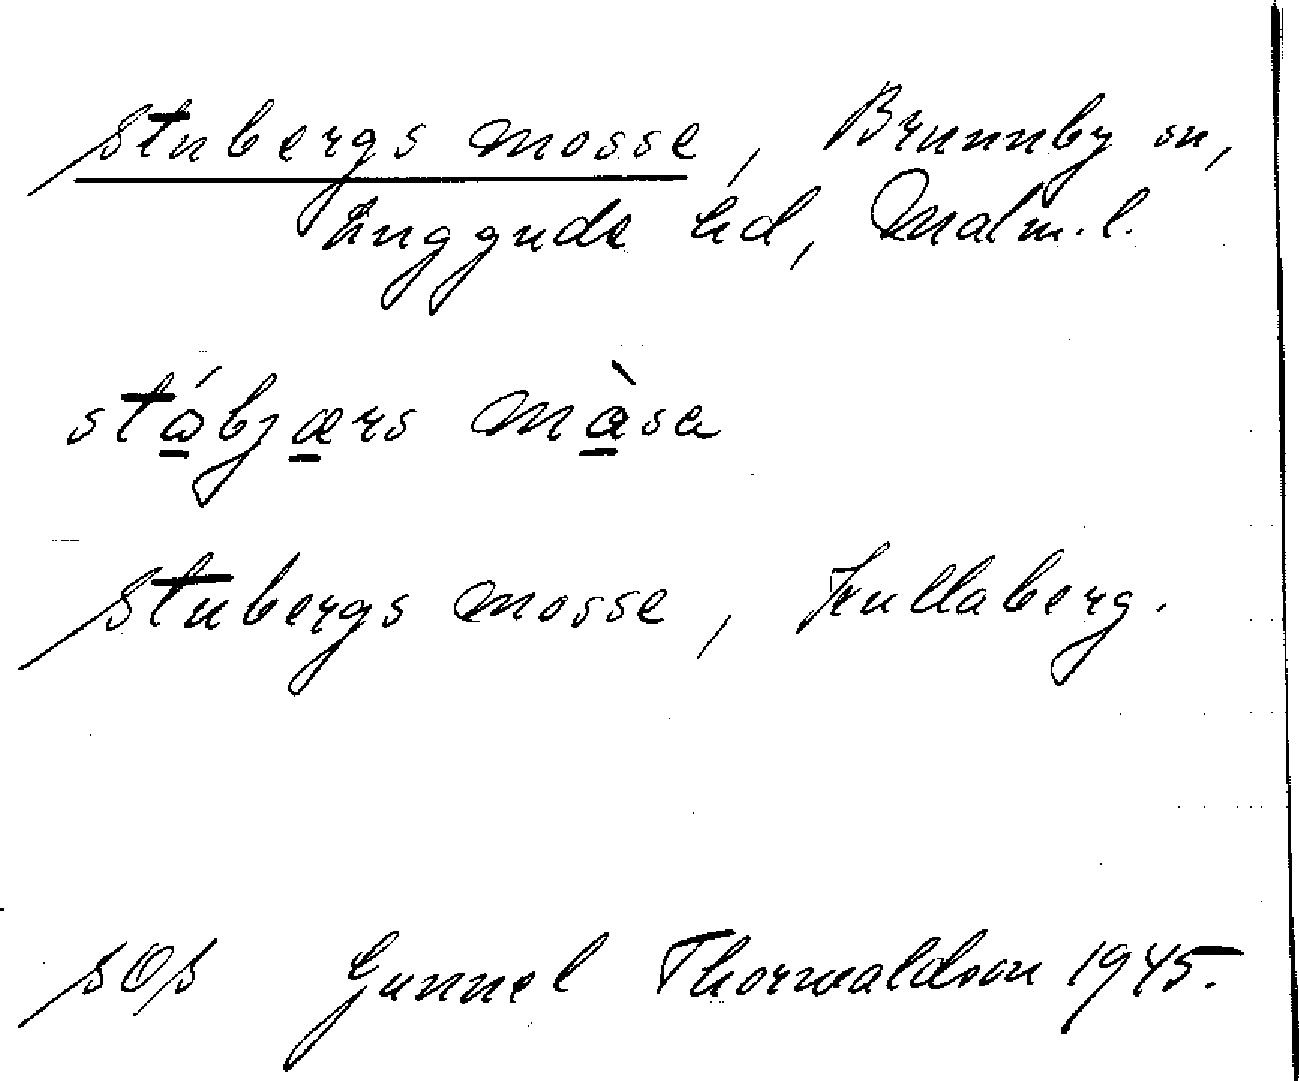 Stubergs mosse, Brunnby sn,
Luggude hd, Malm. l.
stɷ́bjærs màsa
Stubergs mosse, Kullaberg.
SOS Gunnel Thorwaldson 1945.